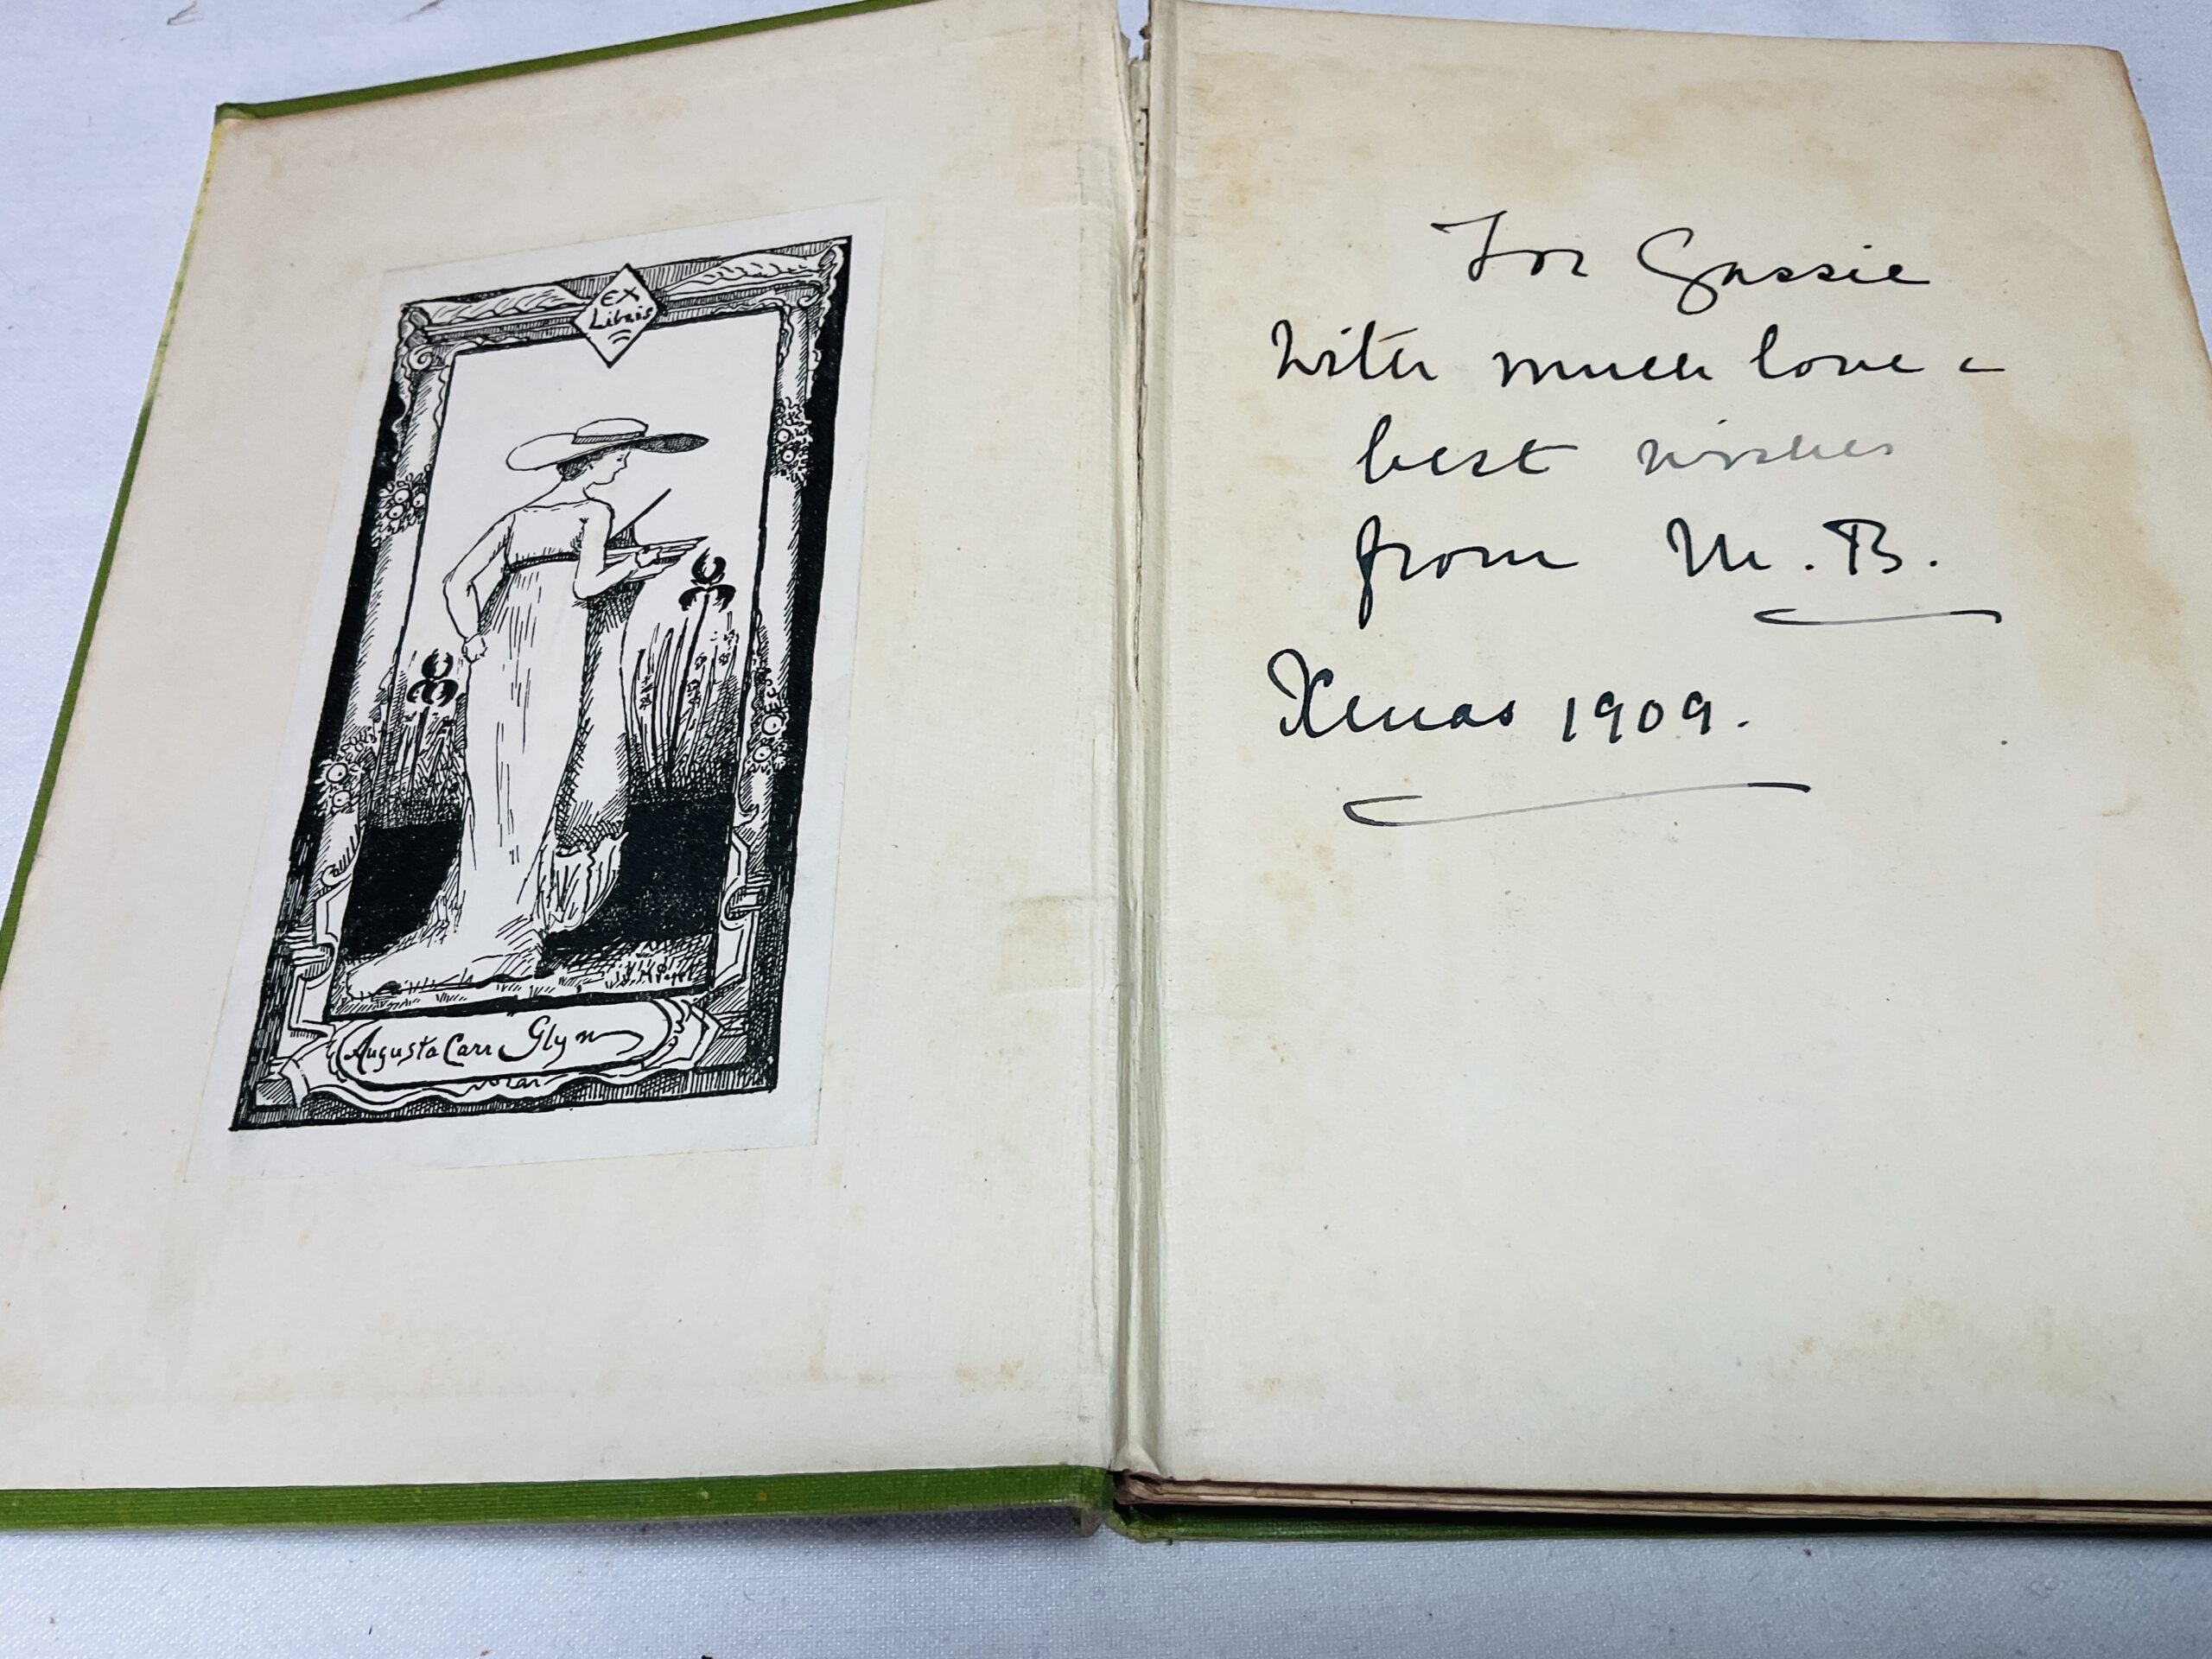 Ex
Libris
Augusta Carr Glyn
For Gussie
With much love &
best wishes
from M. B.
Xmas 1909.